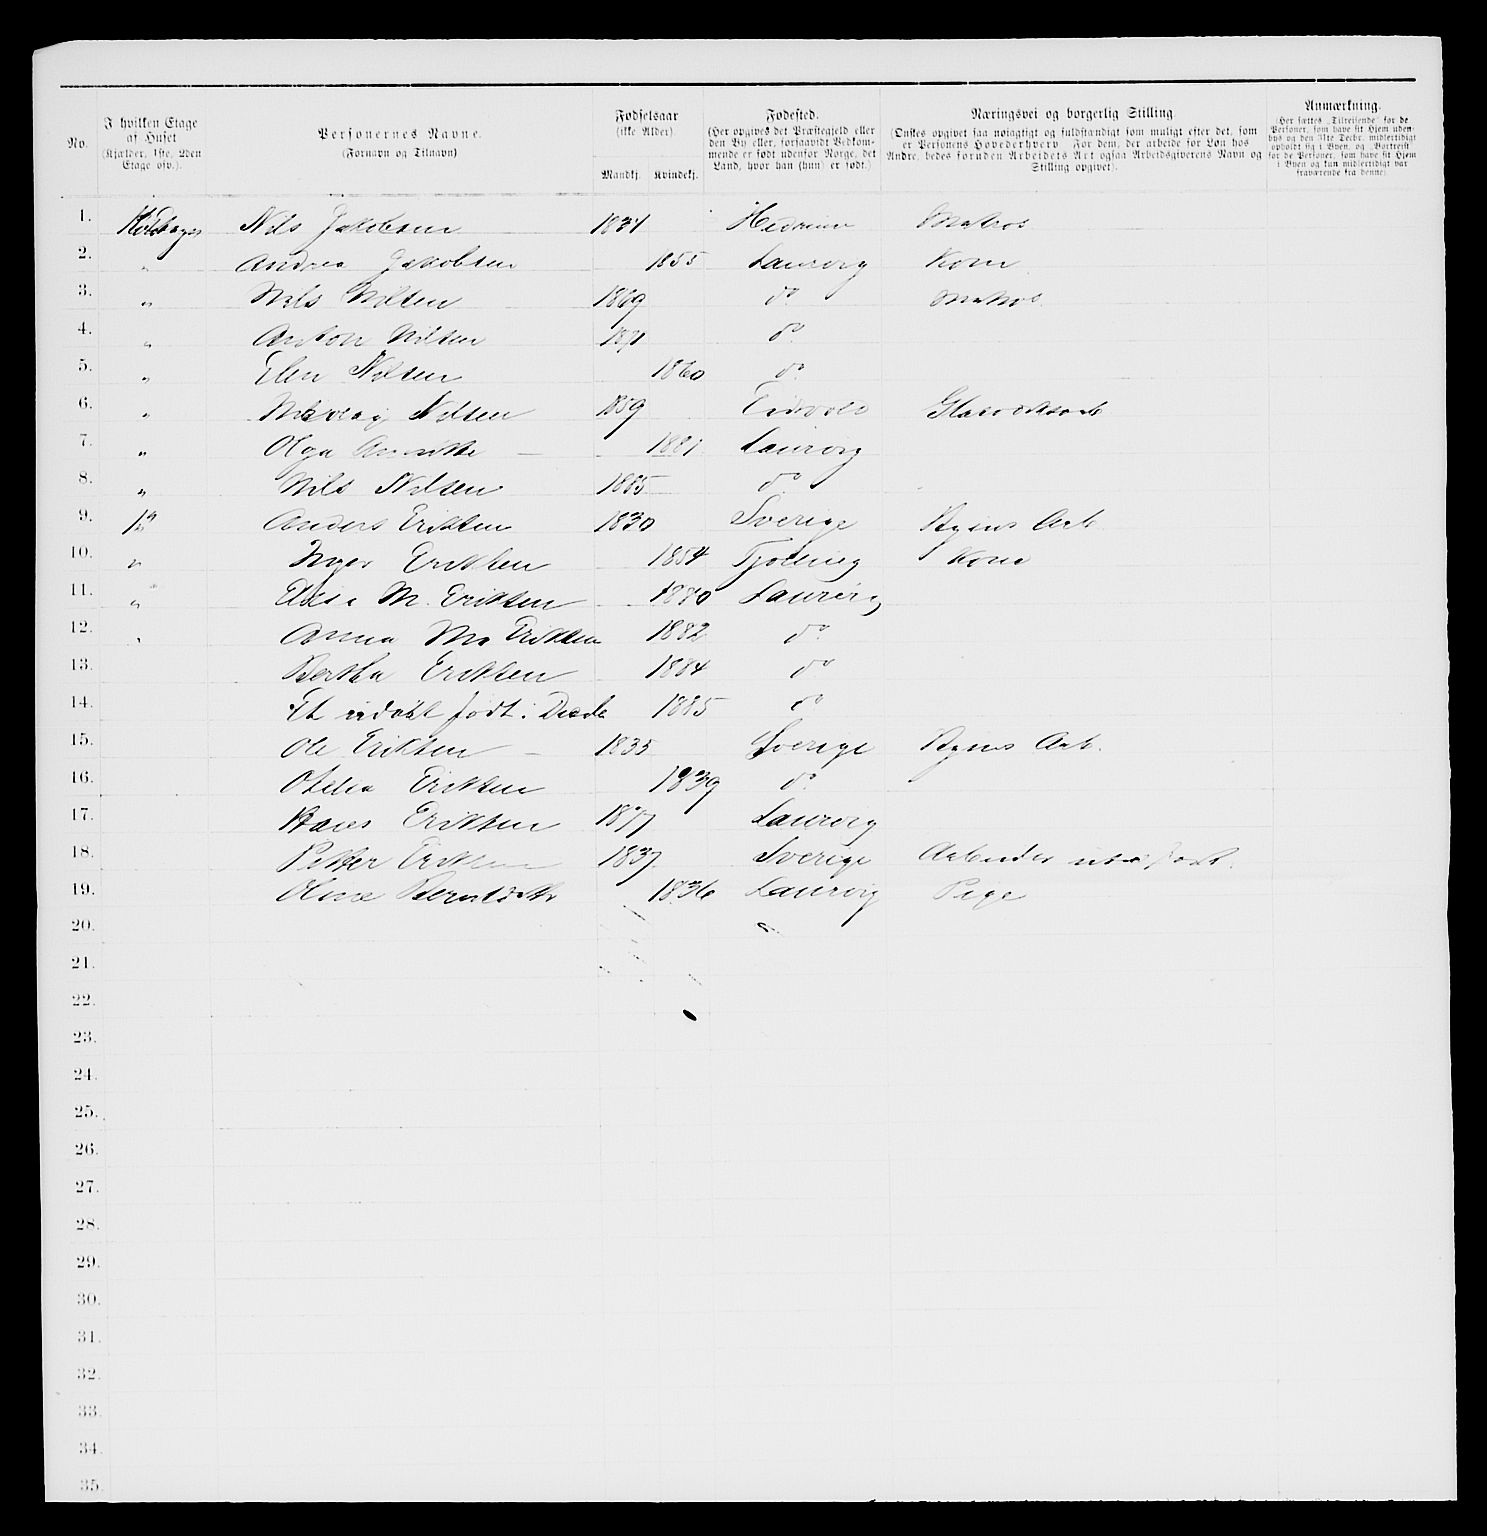 No.
I hvilken Etage af Huset (Kjælder, 1ste, 2den Etage osv.).
Personernes Navne. (Fornavn og Tilnavn)
Fødselsaar (ikke Alder).
Mandkj. Kvindekj.
Fødested. (Her opgives det Præstegjeld eller den By eller, forsaavidt Vedkommende er født udenfor Norge, det Land, hvor han (hun) er født.)
Næringsvei og borgerlig Stilling (Ønskes opgivet saa nøiagtigt og fuldstændigt som muligt efter det, som er Personens Hovederhverv For dem, der arbeide for Løn hos Andre, bedes foruden Arbeidets Art ogsaa Arbeidsgiverens Navn og Stilling opgivet).
Anmærkning. (Her sættes „Tilreisende" for de Personer, som have sit Hjem udenbys og den 31te Decbr. midlertidigt opholdt sig i Byen, og „Bortreist" for de Personer, som have sit Hjem i Byen og kun midlertidigt var fraværende fra denne)
1. Nils Jakobsen 1834 Hedrum Matros
2. " Andrea Jakobsen 1855 Laurvig Kone
3. " Nils Nilsen 1869 do Matros
4. " Anton Nilsen do
5. " Elen Nilsen 1860 do
6. " Nilsen 1859 Eidsvold
7. " Olga 1881 Laurvig
8. " Nils Nilsen 1885 do
9. Anders Eriksen 1830 Sverige Arb
10. " Inger Eriksen 1854 Tjølling Kone
11. " M. Eriksen 1880 Laurvig
12. " Anna Ma Eriksen 1882 do
13. Bertha Eriksen 1884 do
14. Et udøbt født 1885 do
15. Ole Eriksen 1835 Sverige Arb.
16. Otelia Eriksen 1839 do
17. Hans Eriksen 1877 Laurvig
18. Petter Eriksen 1837 Sverige Arbeider
19. Oline 1836 Laurvig Pige
20.
21.
22.
23.
24.
25.
26.
27.
28.
29.
30.
31.
32.
33.
34.
35.